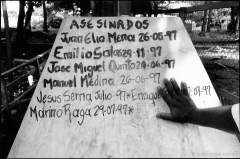 ASESINADOS
Juan Elio Mena 26-05-97
Emilio Salas 29-11-97
Jose Miguel Quinto 29-06-97
Manuel Medina 26-06-97
Jesus Serna Julio-97* Enrique 07-97
Marino Raga 29-07-97*